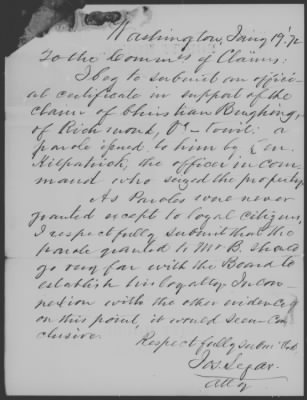 Washington, Jany 19 '72
To the Commrs of Claims:
I beg to submit an offici-
al certificate in support of the
claim of Christian Burghing,
of Richmond, Va - to wit: a
parole issued to him by Gen.
Kilpatrick, the officer in com-
mand who seized the property
As Paroles were never
granted except to loyal citizens,
I respectfully submit that the
parole granted to Mr B. should
go very far with the Board to
establish his loyalty. In con-
nexion with the other evidence
on this point, it would seem con-
clusive.
Respectfully submitted
Jos. Segar.
Atty